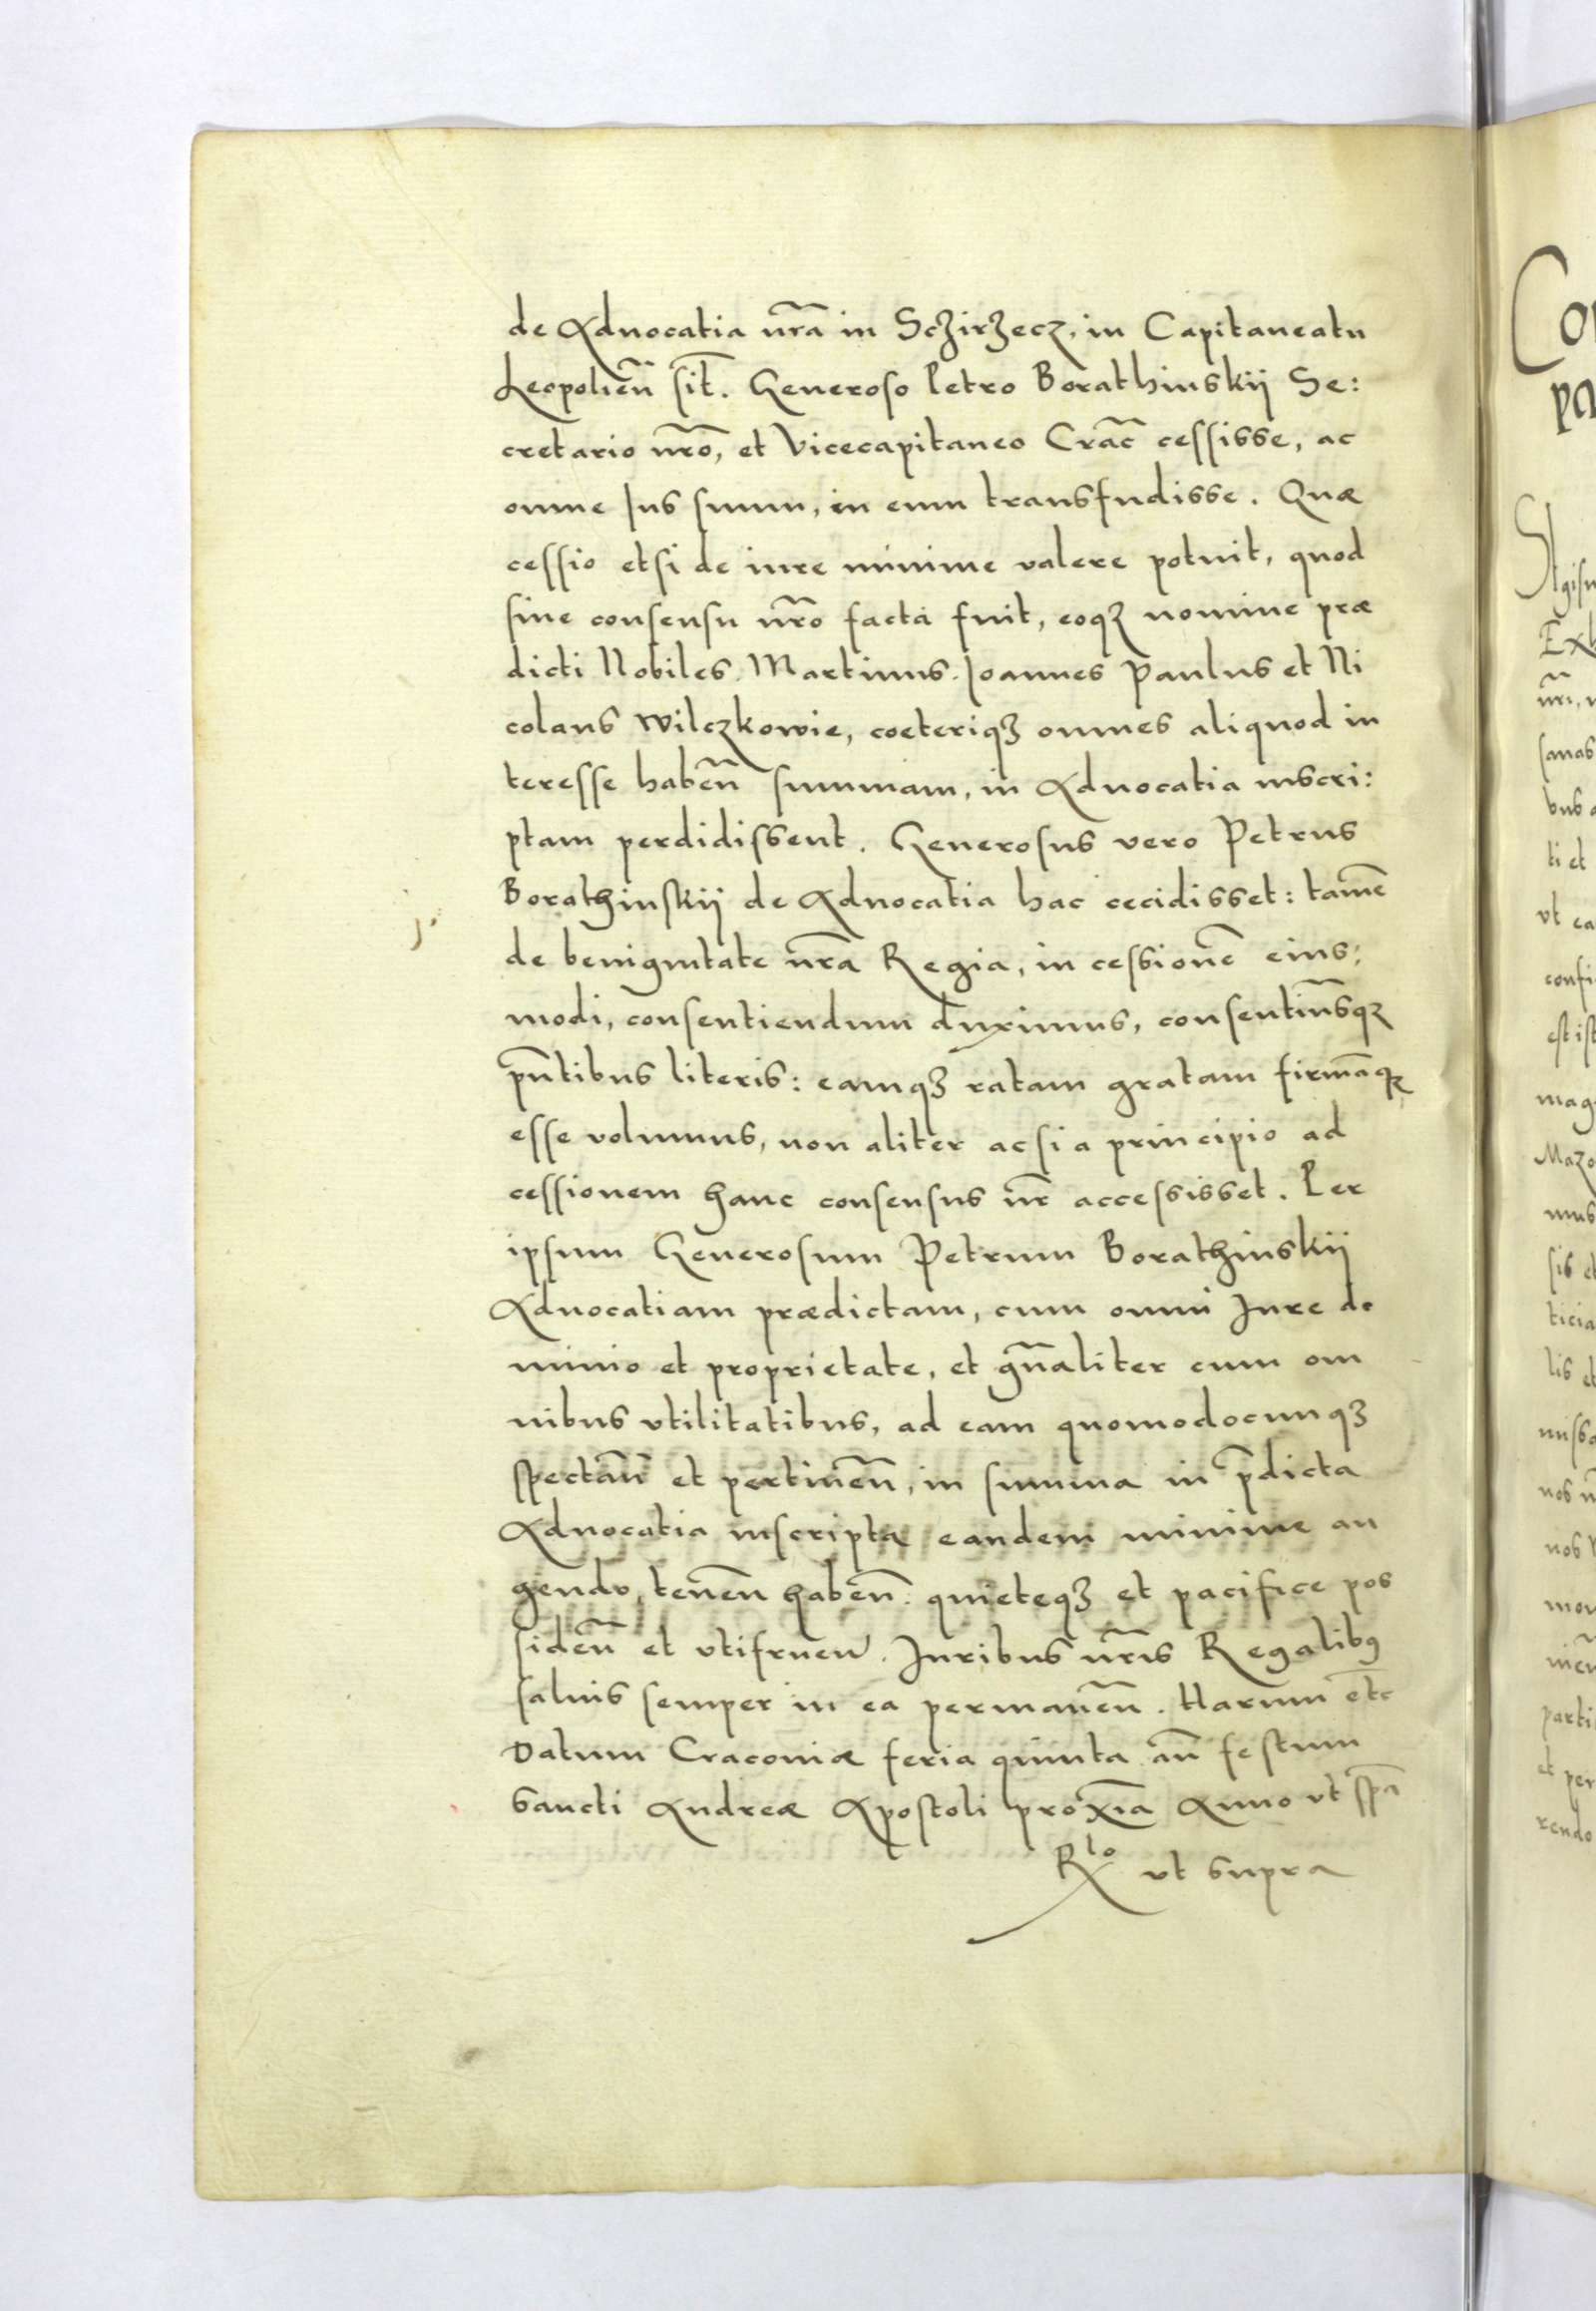 de Aduocatia nr̃a in Sczirzecz, in Capitaneatu
Leopolien̄ sit̃. Generoso Petro Borathinskij Se:
cretario nr̃o, et Vicecapitaneo Crac̃ cessisse, ac
omne Jus suum, in eum transfudisse. Quæ
cessio etsi de iure minime valere potuit, quod
sine consensu nr̃o facta fuit, eoqꝫ nomine præ
dicti Nobiles. Martinus. Joannes Paulus et Ni
colaus Wilczkowie, coeteriqꝫ omnes aliquod in
teresse haben̄ summam, in Aduocatia inscri:
ptam perdidissent. Generosus vero Petrus
Borathinskij de Aduocatia hac cecidisset: tamē
de benignitate nr̃a Regia, in cessionē eius:
modi, consentiendum duximus, consentim̃usqꝫ
pn̄tibus literis: eamqꝫ ratam gratam firmāqꝫ
esse volumus, non aliter ac si a principio ad
cessionem hanc consensus nr̃ accessisset. Per
ipsum Generosum Petrum Borathinskij
Aduocatiam prædictam, cum omni Jure do
minio et proprietate, et gn̄aliter cum om
nibus vtilitatibus, ad eam quomodocunqꝫ
spectan̄ et pertinen̄, in summa in p̄dicta
Aduocatia inscripta eandem minime au
gendo, tenen̄ haben̄: quieteqꝫ et pacifice pos
siden̄ et vtifruen̄. Juribus nr̃is Regalibꝰ
saluis semper in ea permanen̄. Harum etc̃
Datum Cracouiæ feria quinta an̄ festum
Sancti Andreæ Apostoli proxīa Anno vt sp̃a
Rlo vt supra
Co
pa